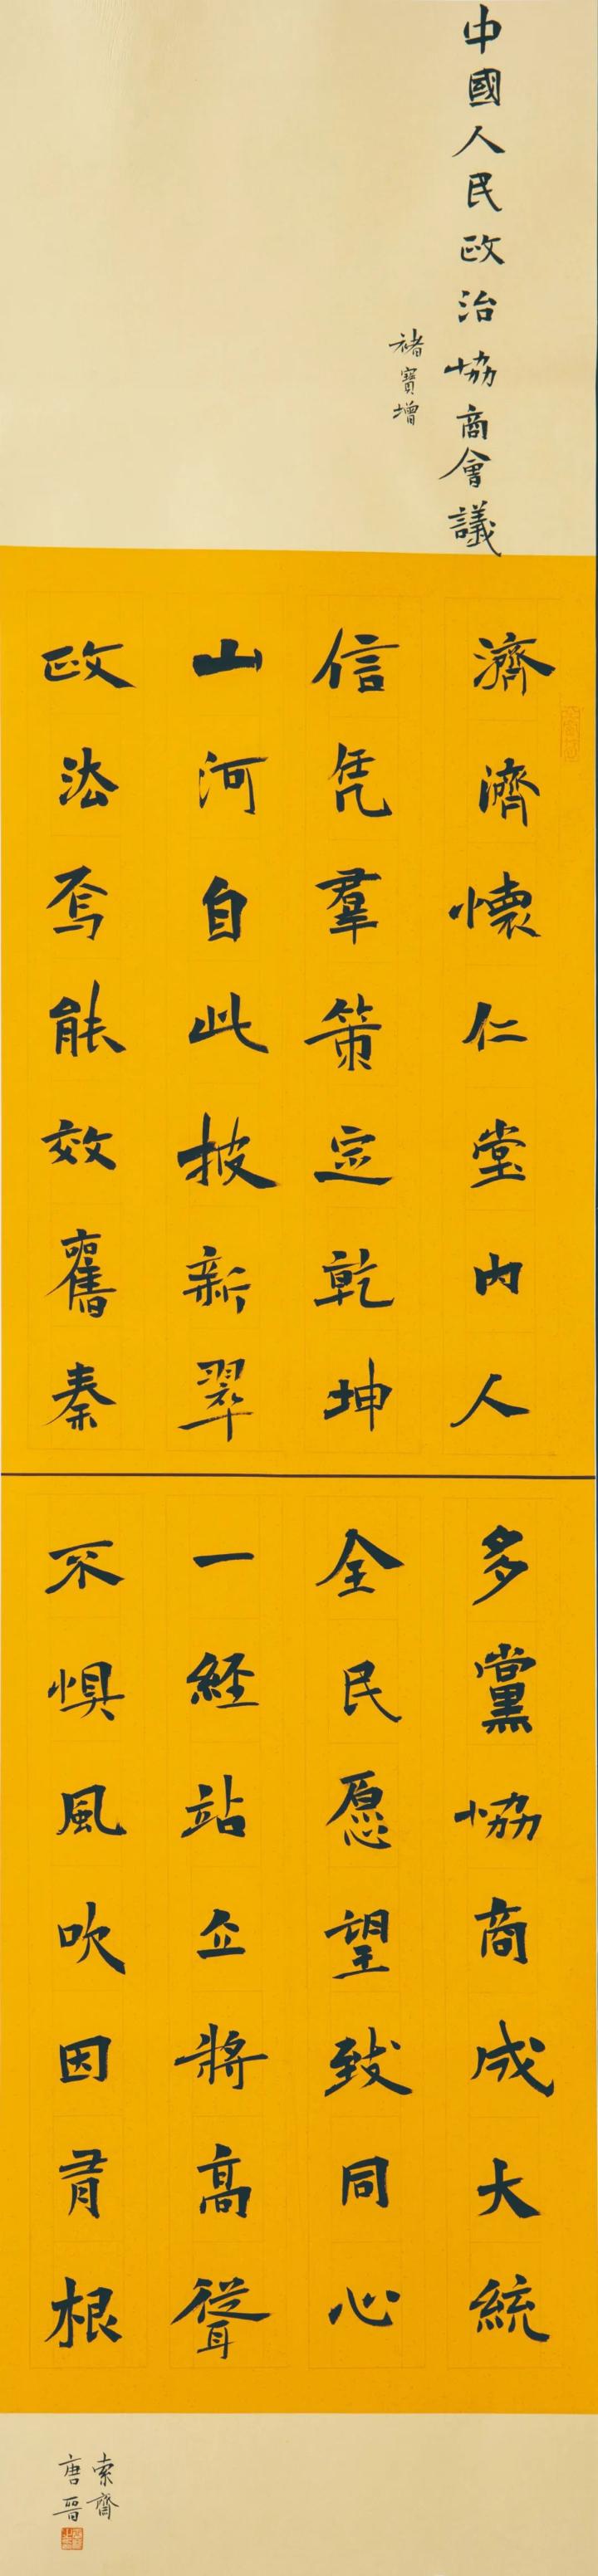 中國人民政治協商會議
褚寶增
濟濟懷仁堂內人
信凭羣策定乾坤
山河自此披新翠
政法焉能效舊秦
多黨協商成大統
全民愿望致同心
一経站立將高聳
不懼風吹因有根
索齋
唐晉